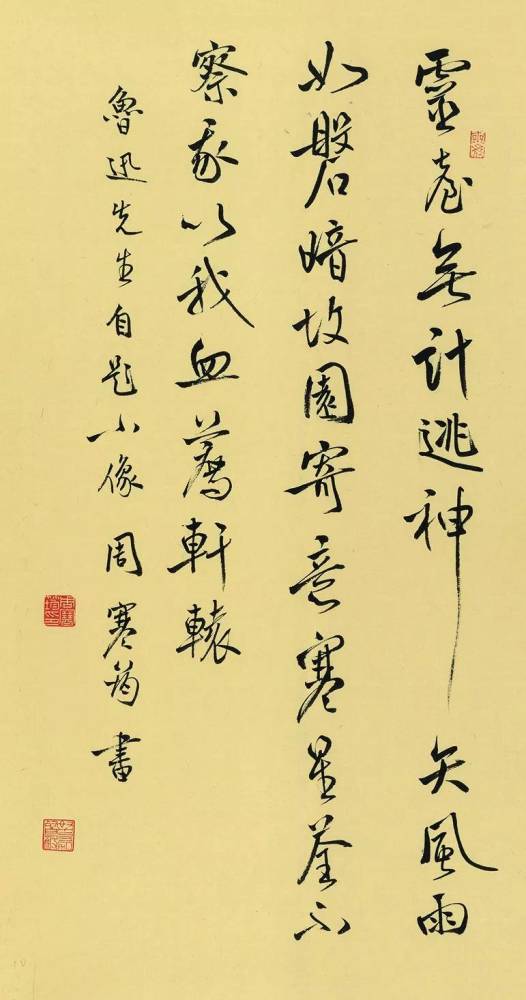 靈臺無計逃神矢風雨
如磐暗故園寄意寒星荃不
察我以我血薦軒轅
魯迅先生自題小像 周寒書